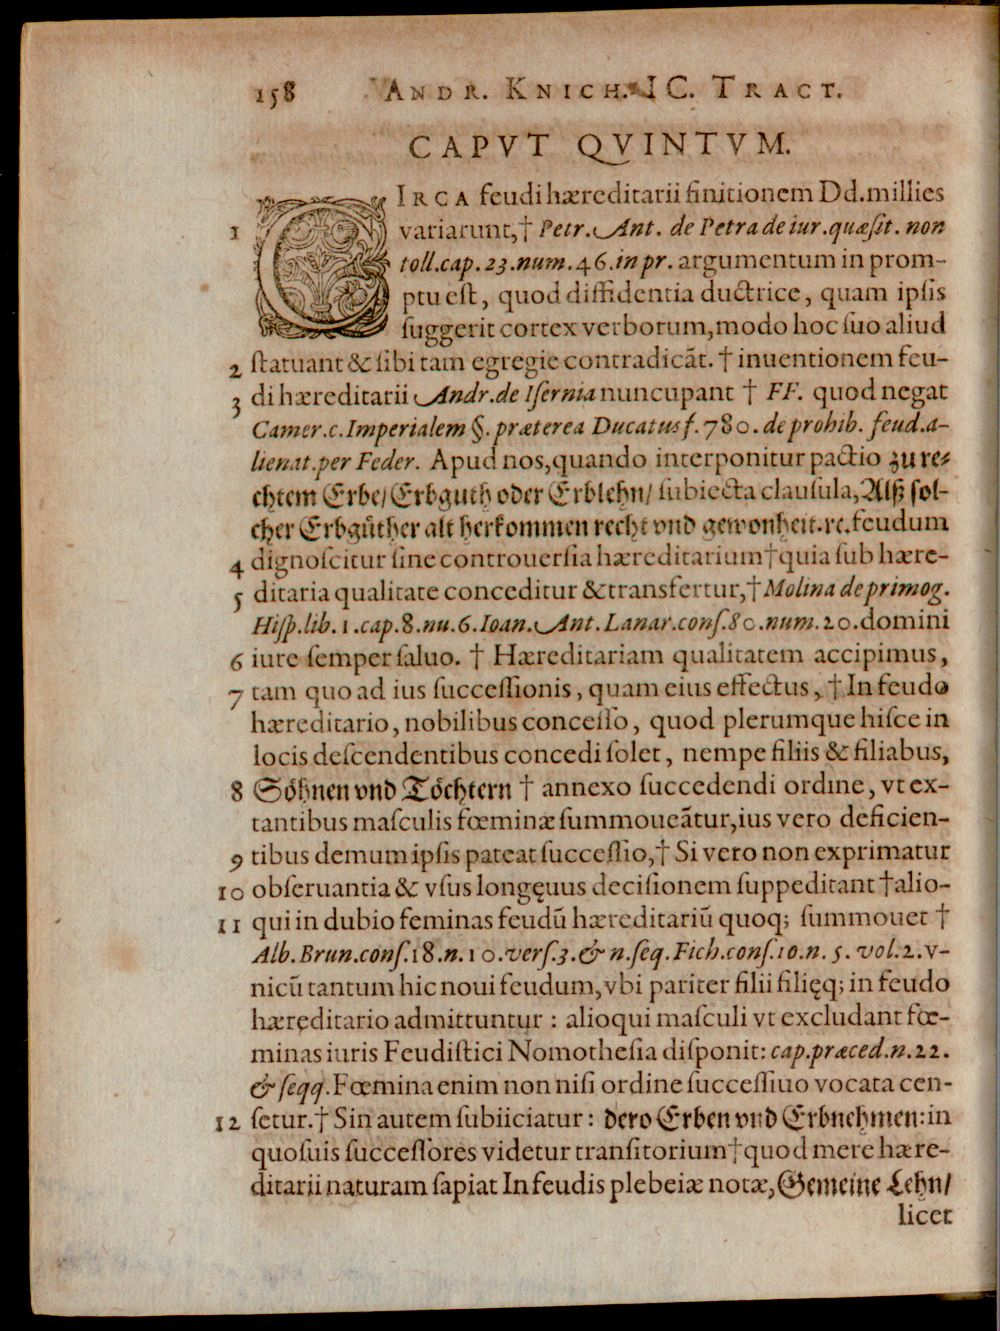 158 ANDR. KNICH. IC. TRACT.
CAPVT QVINTVM.
CIRCA feudi hæreditarii finitionem Dd. millies
1 variarunt, † Petr. Ant. de Petra de iur. quæsit. non
toll. cap. 23. num. 46. in pr. argumentum in prom-
ptu est, quod diffidentia ductrice, quam ipsis
suggerit cortex verborum, modo hoc suo aliud
2 statuant & sibi tam egregie contradicāt. † inuentionem feu-
3 di hæreditarii Andr. de Isernia nuncupant † FF. quod negat
Camer. c. Imperialem §. præterea Ducatus f. 780. de prohib. feud. a-
lienat. per Feder. Apud nos, quando interponitur pactio zu re-
chtem Erbe/ Erbguth oder Erblehn/ subiecta clausula, Alß sol-
cher Erbgüther alt herkommen recht vnd gewonheit. rc. feudum
4 dignoscitur sine controuersia hæreditarium † quia sub hære-
5 ditaria qualitate conceditur & transfertur, † Molina de primog.
Hisp. lib. 1. cap. 8. nu. 6. Ioan. Ant. Lanar. cons. 80. num. 20. domini
6 iure semper saluo. † Hæreditariam qualitatem accipimus,
7 tam quo ad ius successionis, quam eius effectus, † In feudo
hæreditario, nobilibus concesso, quod plerumque hisce in
locis descendentibus concedi solet, nempe filiis & filiabus,
8 Söhnen vnd Töchtern † annexo succedendi ordine, vt ex-
tantibus masculis fœminæ summoueātur, ius vero deficien-
9 tibus demum ipsis pateat successio, † Si vero non exprimatur
10 obseruantia & vsus longęuus decisionem suppeditant † alio-
11 qui in dubio feminas feudū hæreditariū quoq; summouet †
Alb. Brun. cons. 18. n. 10. vers. 3. & n. seq. Fich. cons. 10. n. 5. vol. 2. v-
nicū tantum hic noui feudum, vbi pariter filii filięq; in feudo
hæreditario admittuntur : alioqui masculi vt excludant fœ-
minas iuris Feudistici Nomothesia disponit: cap. præced. n. 22.
& seqq. Fœmina enim non nisi ordine successiuo vocata cen-
12 setur. † Sin autem subiiciatur : dero Erben vnd Erbnehmen: in
quosuis successores videtur transitorium † quod mere hære-
ditarii naturam sapiat In feudis plebeiæ notæ, Gemeine Lehn/
licet